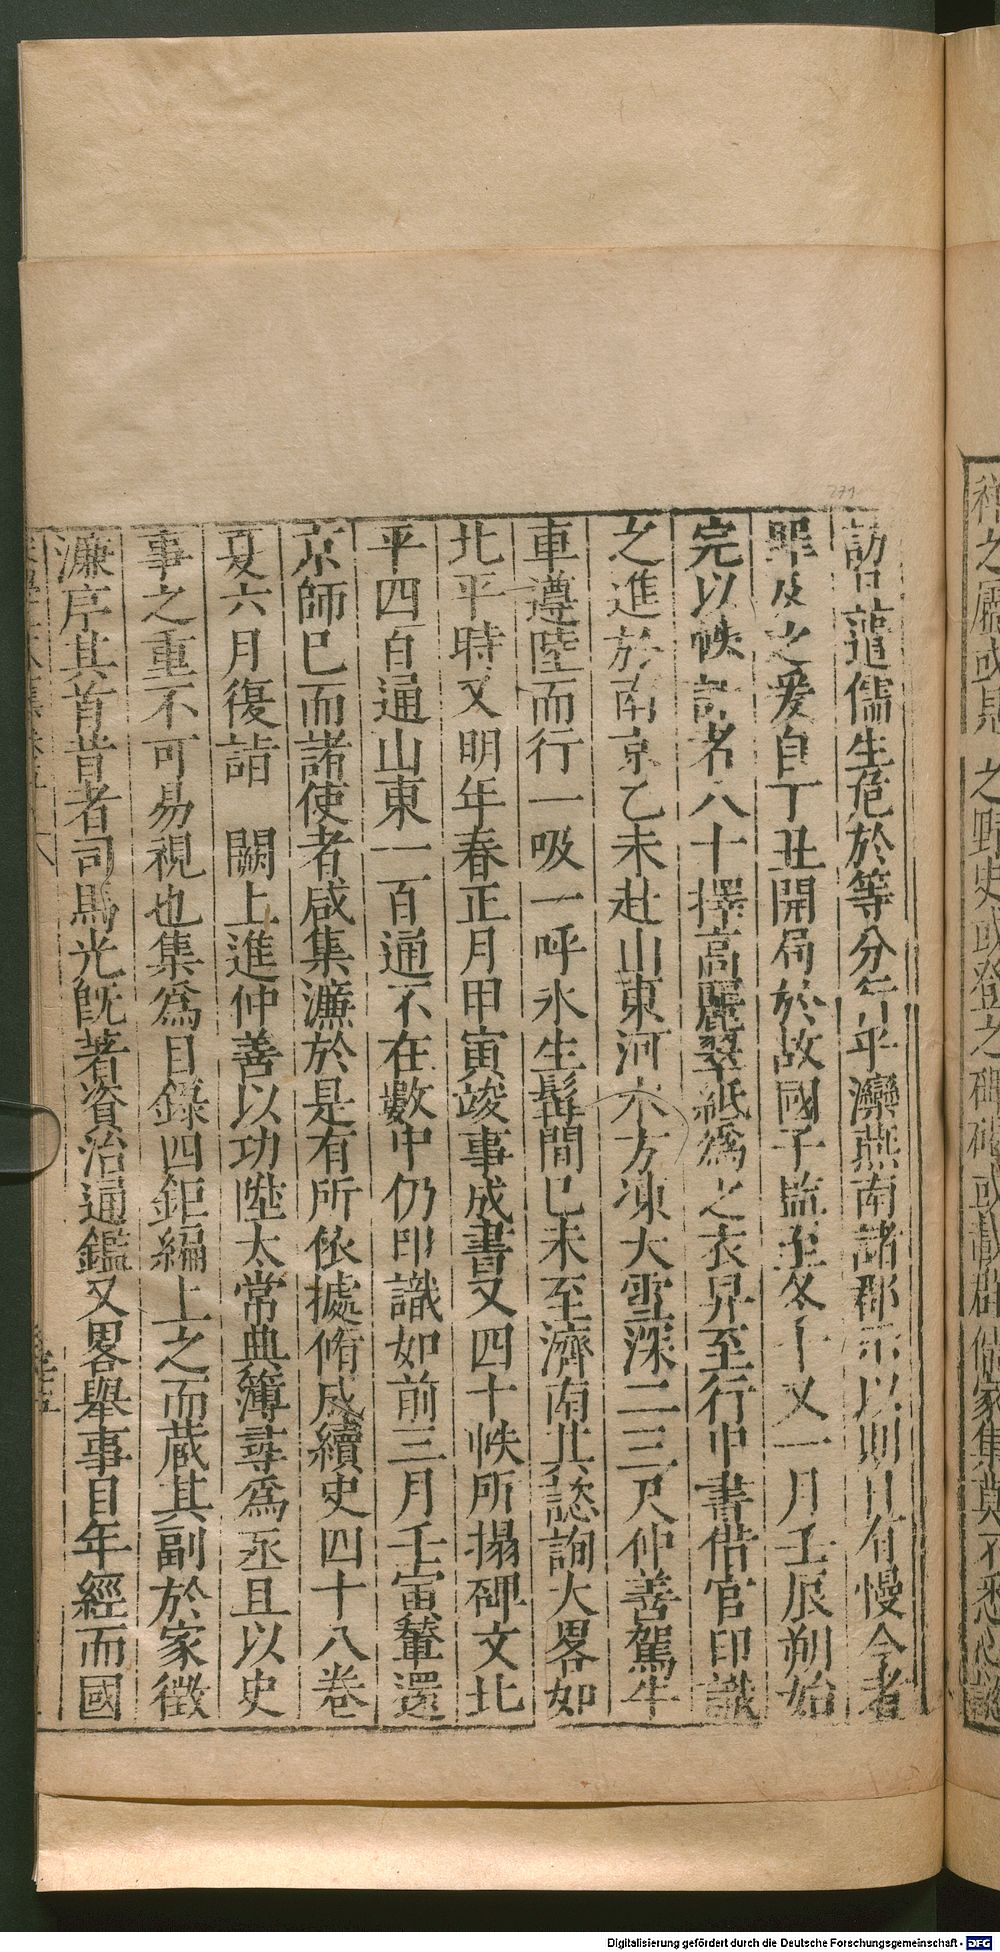 訪且遴儒生危於等分行乎灤燕南諸郡示以期日有慢令者
罪及之爰自丁丑開局於故國子監至冬十又一月壬辰朔始
完以帙計者八十擇高麗翠紙爲之衣舁至行中書借官印識
之進於南京乙未赴山東河水方凍大雪深二三尺仲善駕牛
車遵陸而行一吸一呼氷生髯間已未至濟南其諮詢大畧如
北平時又明年春正月甲寅竣事成書又四十帙所搨碑文北
平四百通山東一百通不在數中仍印識如前三月壬寅輦還
京師已而諸使者咸集濂於是有所依據脩成續史四十八卷
夏六月復詣 闕上進仲善以功陞太常典簿尋爲丞且以史
事之重不可易視也集爲目錄四鉅編上之而蔵其副於家徵
濂序其首昔者司馬光旣著資治通鑑又畧舉事目年經而國
Digitalisierung gefördert durch die Deutsche Forschungsgemeinschaft - DFG